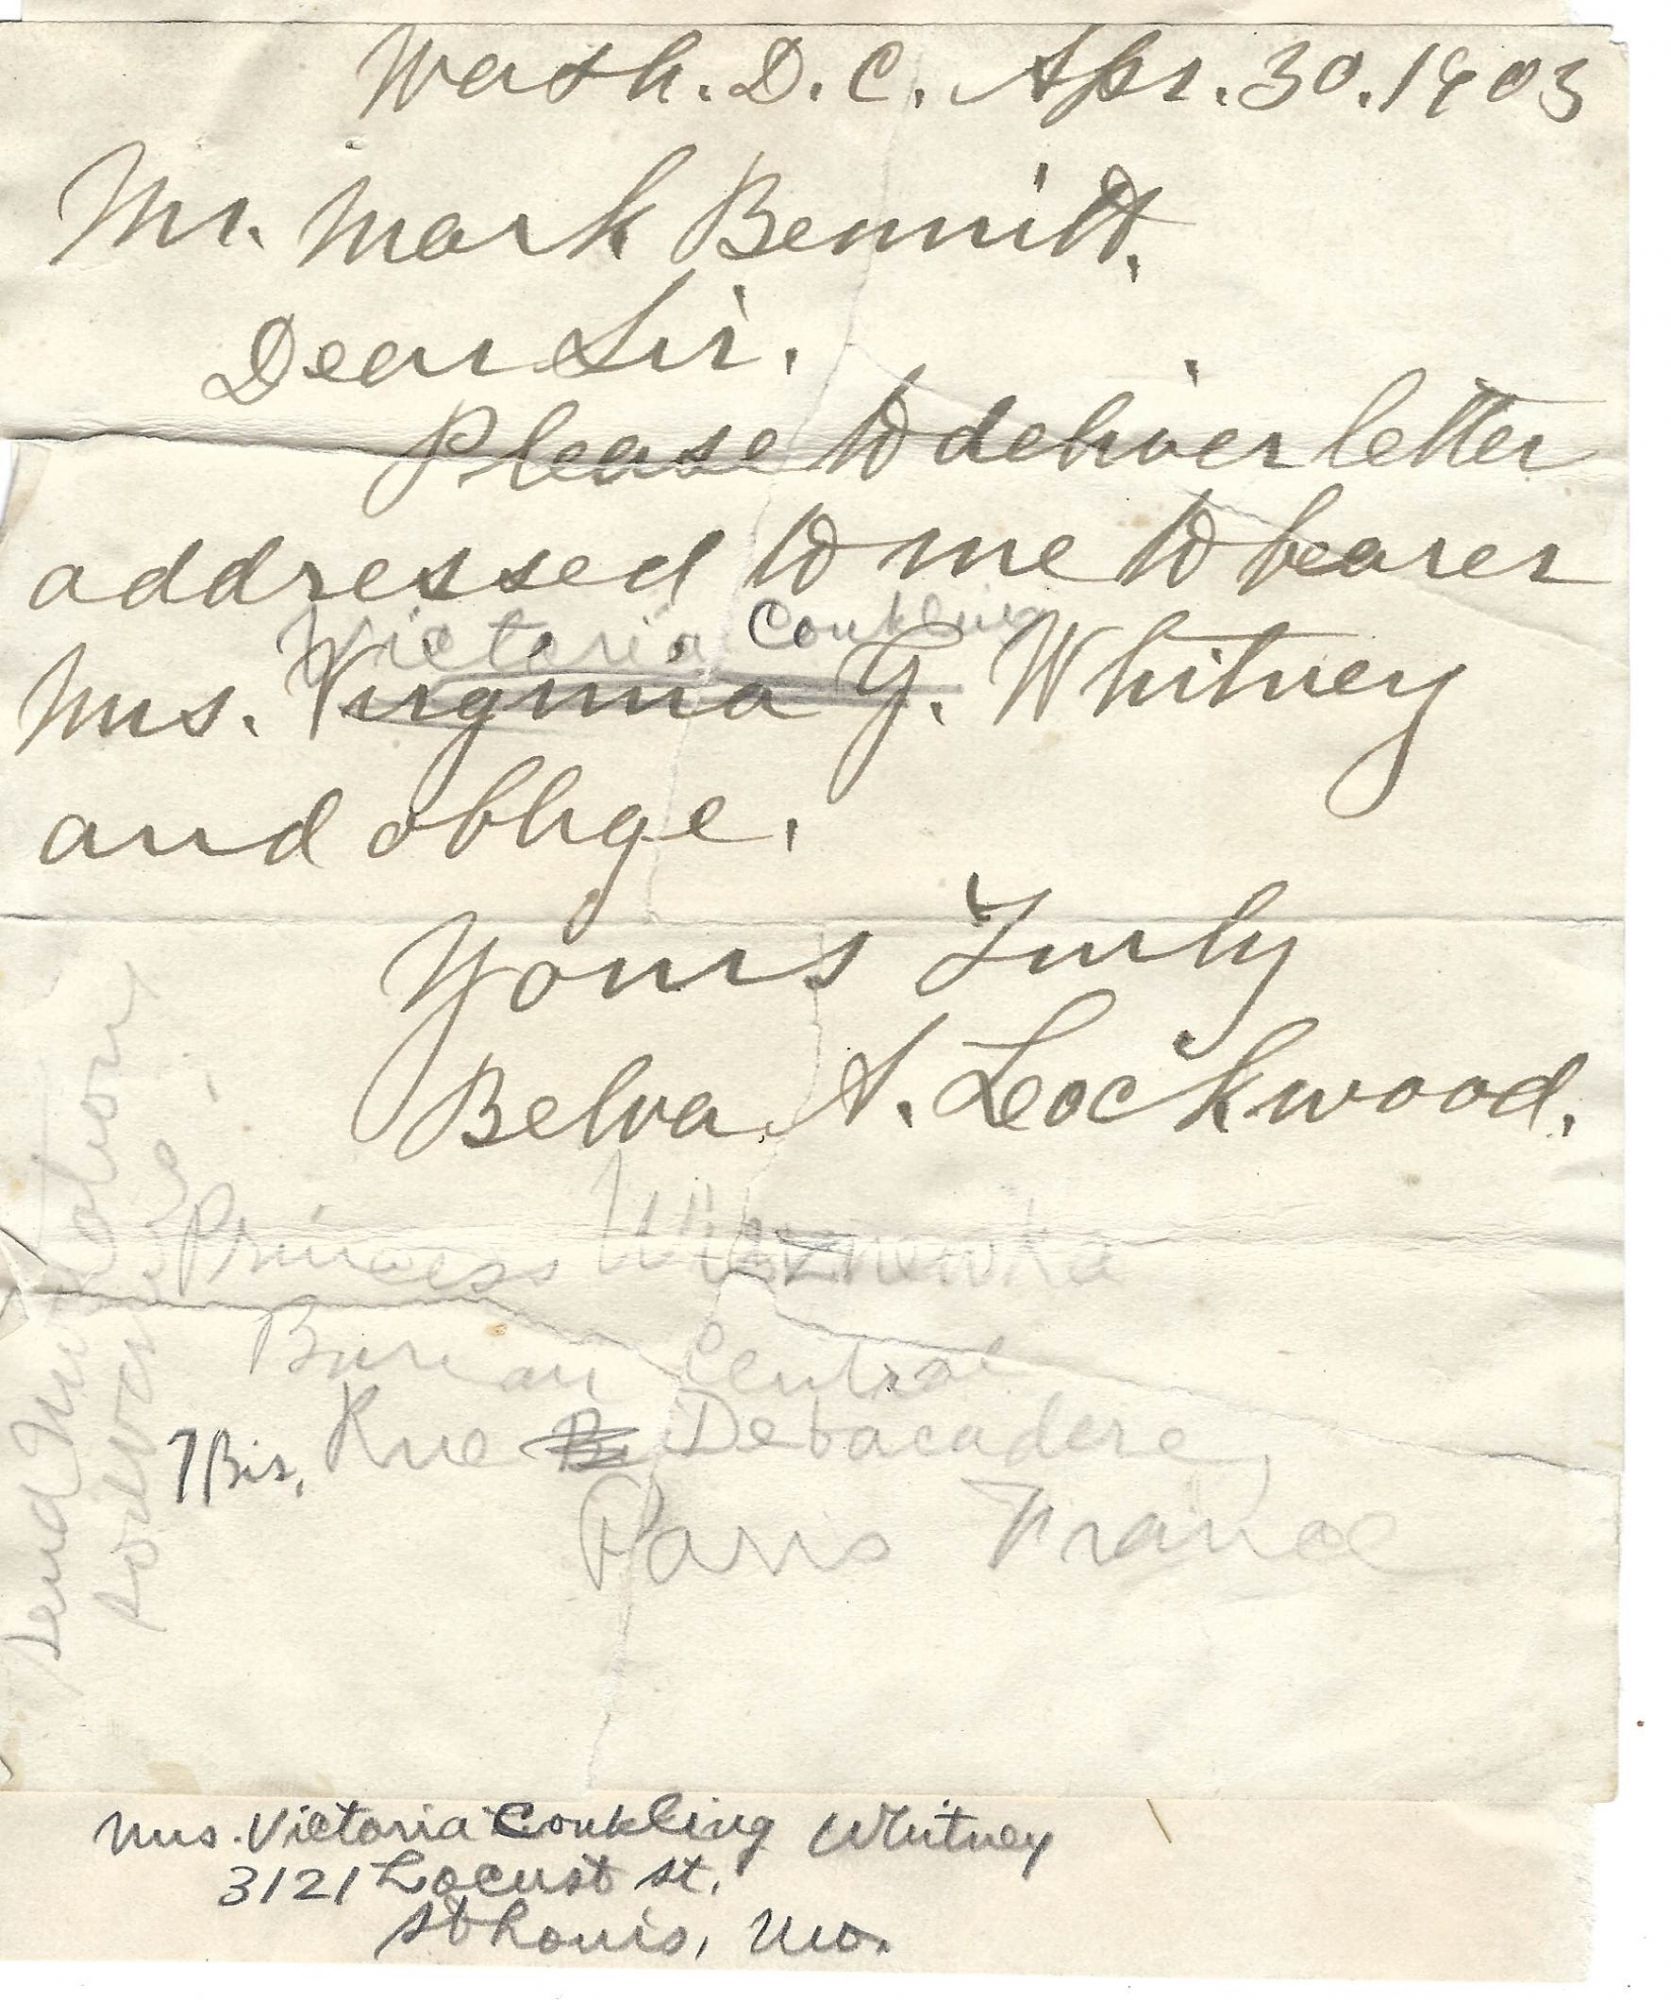 Wash. D. C. Apr. 30. 1903
Mr. Mark Bennitt.
Dear Sir.
Please to deliver letter
addressed to me to bearer
Victoria Conkling
Mrs. Virginia G. Whitney
and oblige.
Yours Truly
Belva A. Lockwood.
Princess
Bureau Central
7 Bis. Rue Debacadere
Paris France
Send
Mrs. Victoria Conkling Whitney
3121 Locust St.
St Louis, Mo.